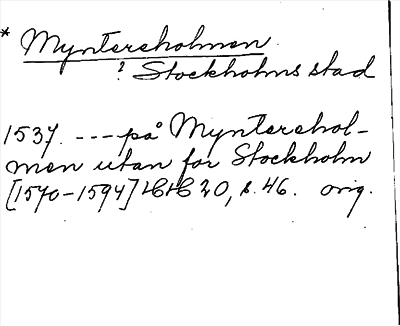 * Myntersholmen
? Stockholms stad
1537. --- på Myntershol-
men utan for Stockholm
[1570-1594] HH 20, s. 46. orig.